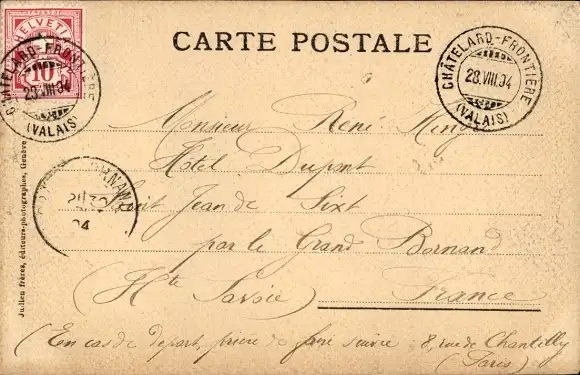 HELVETIA
FRANCO
10
CARTE POSTALE
CHÂTELARD-FRONTIÈRE
28.VIII.04
(VALAIS)
CHÂTELARD-FRONTIÈRE
28.VIII.04
(VALAIS)
Monsieur René
Hôtel Dupont
Saint Jean de Sixt
par le Grand Bornand
(Hte Savoie) France
(En cas de départ, prière de faire suivre 8, rue de Chantilly
(Paris)
04
Jullien frères, éditeurs-photographes, Genève